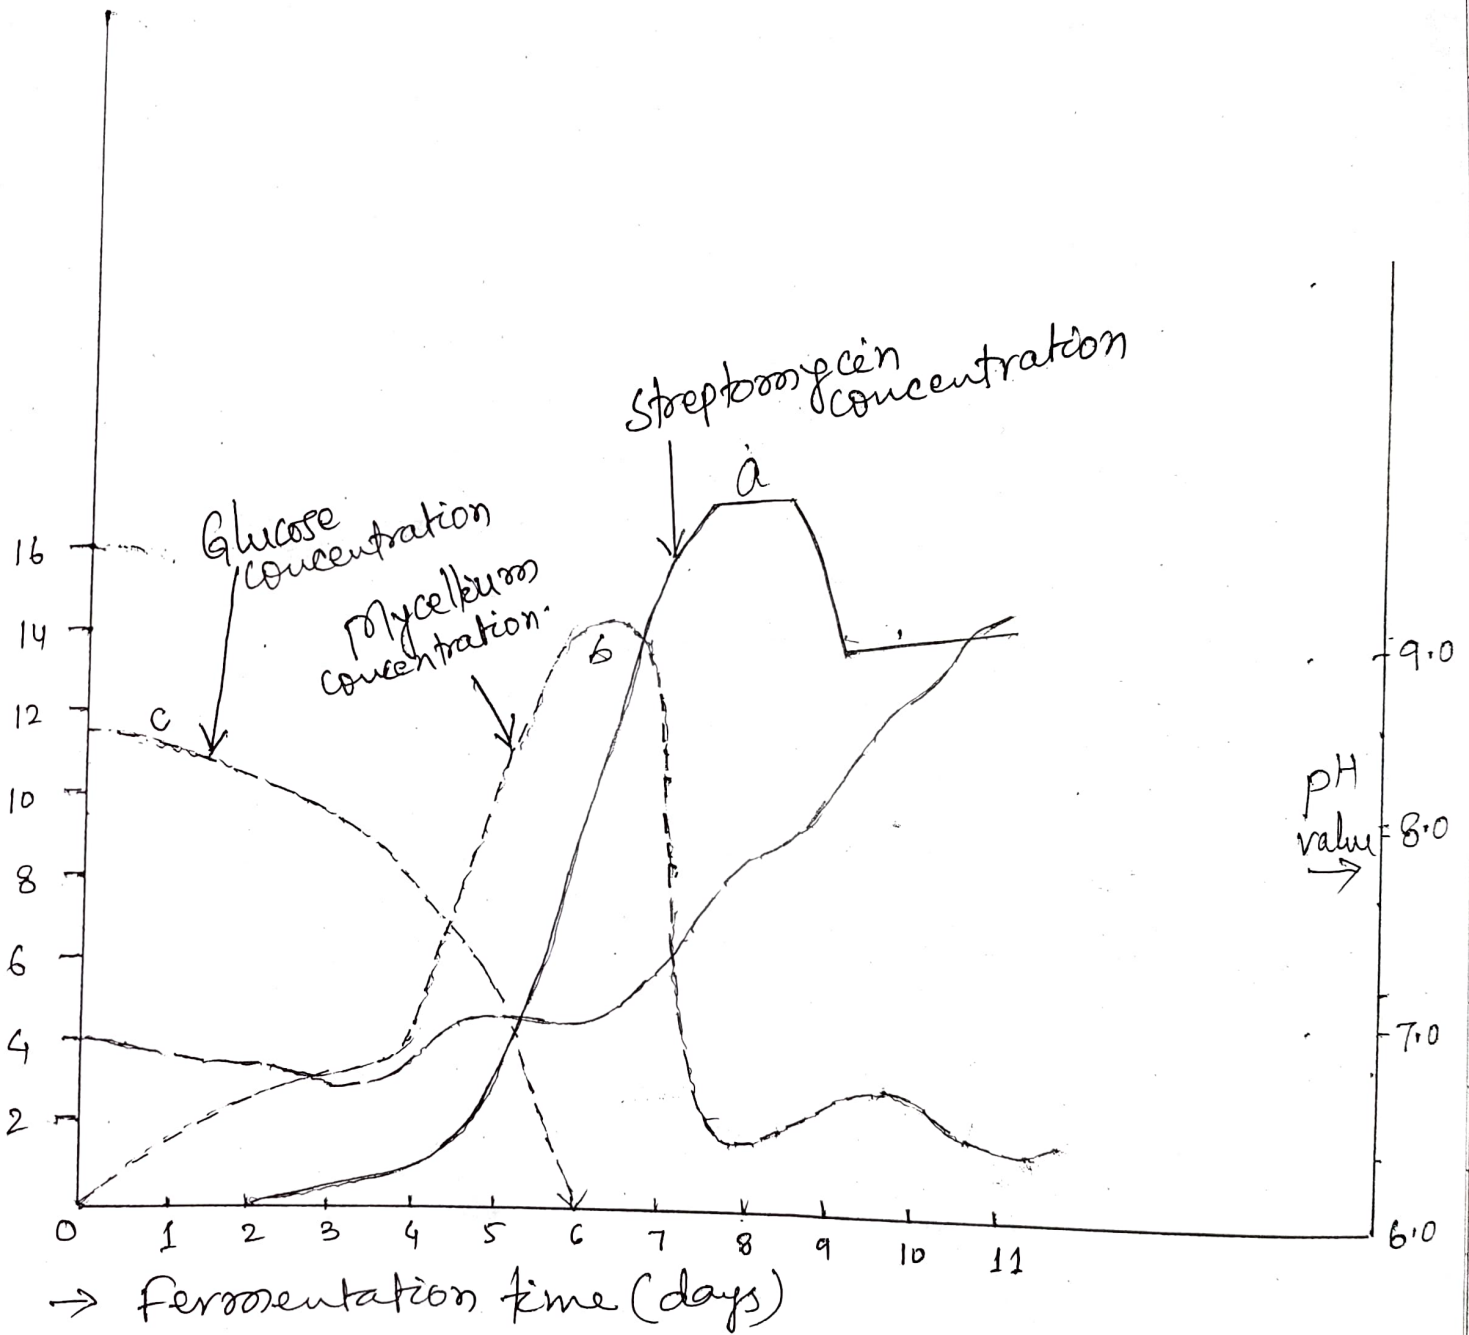 Streptomycin
concentration
a
Glucose
concentration
Mycellium
concentration.
b
c
16
14
12
10
8
6
4
2
9.0
8.0
7.0
6.0
pH
value
→
0 1 2 3 4 5 6 7 8 9 10 11
→ Fermentation time (days)